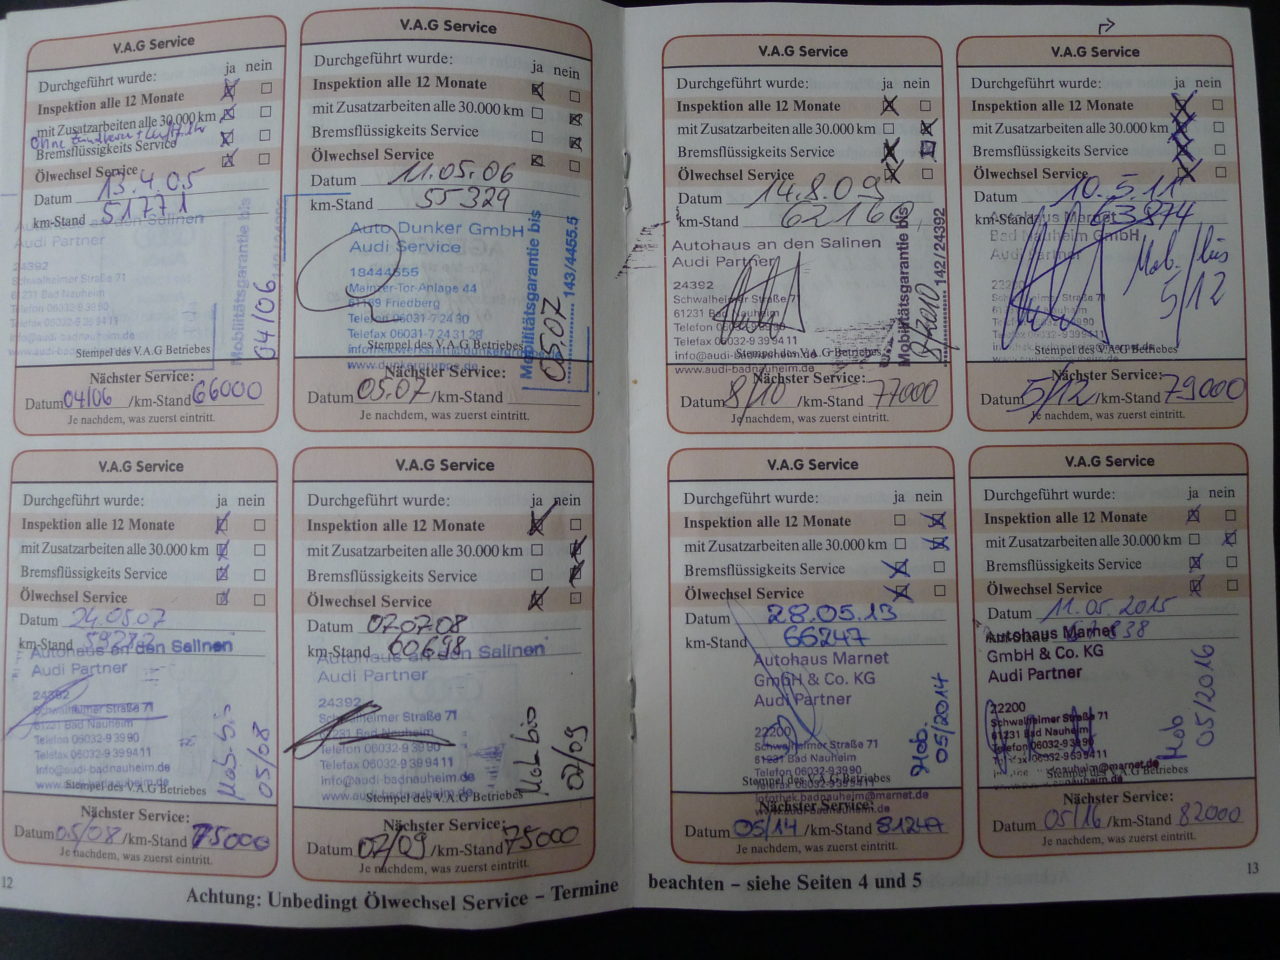 V.A.G Service
Durchgeführt wurde: ja nein
Inspektion alle 12 Monate
mit Zusatzarbeiten alle 30.000 km
Bremsflüssigkeits Service
Ölwechsel Service
Datum 13.4.05
km-Stand 51771
an den Salinen
Audi Partner
24392
Schwalheimer Straße 71
61231 Bad Nauheim
Telefon 06032-9 39 90
Telefax 06032-9 39 94 11
Mobilitätsgarantie bis
04/06
Stempel des V.A.G Betriebes
Nächster Service:
Datum 04/06 /km-Stand 66000
Je nachdem, was zuerst eintritt.
V.A.G Service
Durchgeführt wurde: ja nein
Inspektion alle 12 Monate
mit Zusatzarbeiten alle 30.000 km
Bremsflüssigkeits Service
Ölwechsel Service
Datum 11.05.06
km-Stand 55329
Auto Dunker GmbH
Audi Service
18444855
Mainzer-Tor-Anlage 44
61169 Friedberg
Telefon 06031-7 24 30
Telefax 06031-7 24 31 28
Mobilitätsgarantie bis
05.07 143/4455.5
Stempel des V.A.G Betriebes
Nächster Service:
Datum 05.07 /km-Stand
Je nachdem, was zuerst eintritt.
V.A.G Service
Durchgeführt wurde: ja nein
Inspektion alle 12 Monate
mit Zusatzarbeiten alle 30.000 km
Bremsflüssigkeits Service
Ölwechsel Service
Datum 24.05.07
km-Stand
Autohaus an den Salinen
Audi Partner
24392
Schwalheimer Straße 71
61231 Bad Nauheim
Telefon 06032-9 39 90
Telefax 06032-9 39 94 11
info@audi-badnauheim.de
www.audi-badnauheim.de
Mob. bis
05/08
Stempel des V.A.G Betriebes
Nächster Service:
Datum 05/08 /km-Stand 75000
Je nachdem, was zuerst eintritt.
V.A.G Service
Durchgeführt wurde: ja nein
Inspektion alle 12 Monate
mit Zusatzarbeiten alle 30.000 km
Bremsflüssigkeits Service
Ölwechsel Service
Datum 07.07.08
km-Stand 60698
Autohaus an den Salinen
Audi Partner
24392
Schwalheimer Straße 71
61231 Bad Nauheim
Telefon 06032-9 39 90
Telefax 06032-9 39 94 11
info@audi-badnauheim.de
www.audi-badnauheim.de
Mob bis
07/09
Stempel des V.A.G Betriebes
Nächster Service:
Datum 07/09 /km-Stand 75000
Je nachdem, was zuerst eintritt.
12
Achtung: Unbedingt Ölwechsel Service – Termine
V.A.G Service
Durchgeführt wurde: ja nein
Inspektion alle 12 Monate
mit Zusatzarbeiten alle 30.000 km
Bremsflüssigkeits Service
Ölwechsel Service
Datum 14.8.09
km-Stand 62160
Autohaus an den Salinen
Audi Partner
24392
Schwalheimer Straße 71
61231 Bad Nauheim
Telefon 06032-9 39 90
Telefax 06032-9 39 94 11
info@audi-badnauheim.de
www.audi-badnauheim.de
Mobilitätsgarantie bis
8/2010 142/24392
Stempel des V.A.G Betriebes
Nächster Service:
Datum 8/10 /km-Stand 77000
Je nachdem, was zuerst eintritt.
V.A.G Service
Durchgeführt wurde: ja nein
Inspektion alle 12 Monate
mit Zusatzarbeiten alle 30.000 km
Bremsflüssigkeits Service
Ölwechsel Service
Datum 10.5.11
km-Stand 63874
Autohaus Marnet
Bad Nauheim GmbH
Audi Partner
Mob. bis
5/12
Stempel des V.A.G Betriebes
Nächster Service:
Datum 5/12 /km-Stand 79000
Je nachdem, was zuerst eintritt.
V.A.G Service
Durchgeführt wurde: ja nein
Inspektion alle 12 Monate
mit Zusatzarbeiten alle 30.000 km
Bremsflüssigkeits Service
Ölwechsel Service
Datum 28.05.13
km-Stand 66247
Autohaus Marnet
GmbH & Co. KG
Audi Partner
22200
Schwalheimer Straße 71
61231 Bad Nauheim
Telefon 06032-9 39 90
Telefax 06032-9 39 94 11
infothek.badnauheim@marnet.de
Mob.
05/2014
Stempel des V.A.G Betriebes
Nächster Service:
Datum 05/14 /km-Stand 81247
Je nachdem, was zuerst eintritt.
V.A.G Service
Durchgeführt wurde: ja nein
Inspektion alle 12 Monate
mit Zusatzarbeiten alle 30.000 km
Bremsflüssigkeits Service
Ölwechsel Service
Datum 11.05.2015
Autohaus Marnet
GmbH & Co. KG
Audi Partner
22200
Schwalheimer Straße 71
61231 Bad Nauheim
Telefon 06032-9 39 90
Mob
05/2016
Stempel des V.A.G Betriebes
Nächster Service:
Datum 05/16 /km-Stand 82000
Je nachdem, was zuerst eintritt.
beachten – siehe Seiten 4 und 5
13